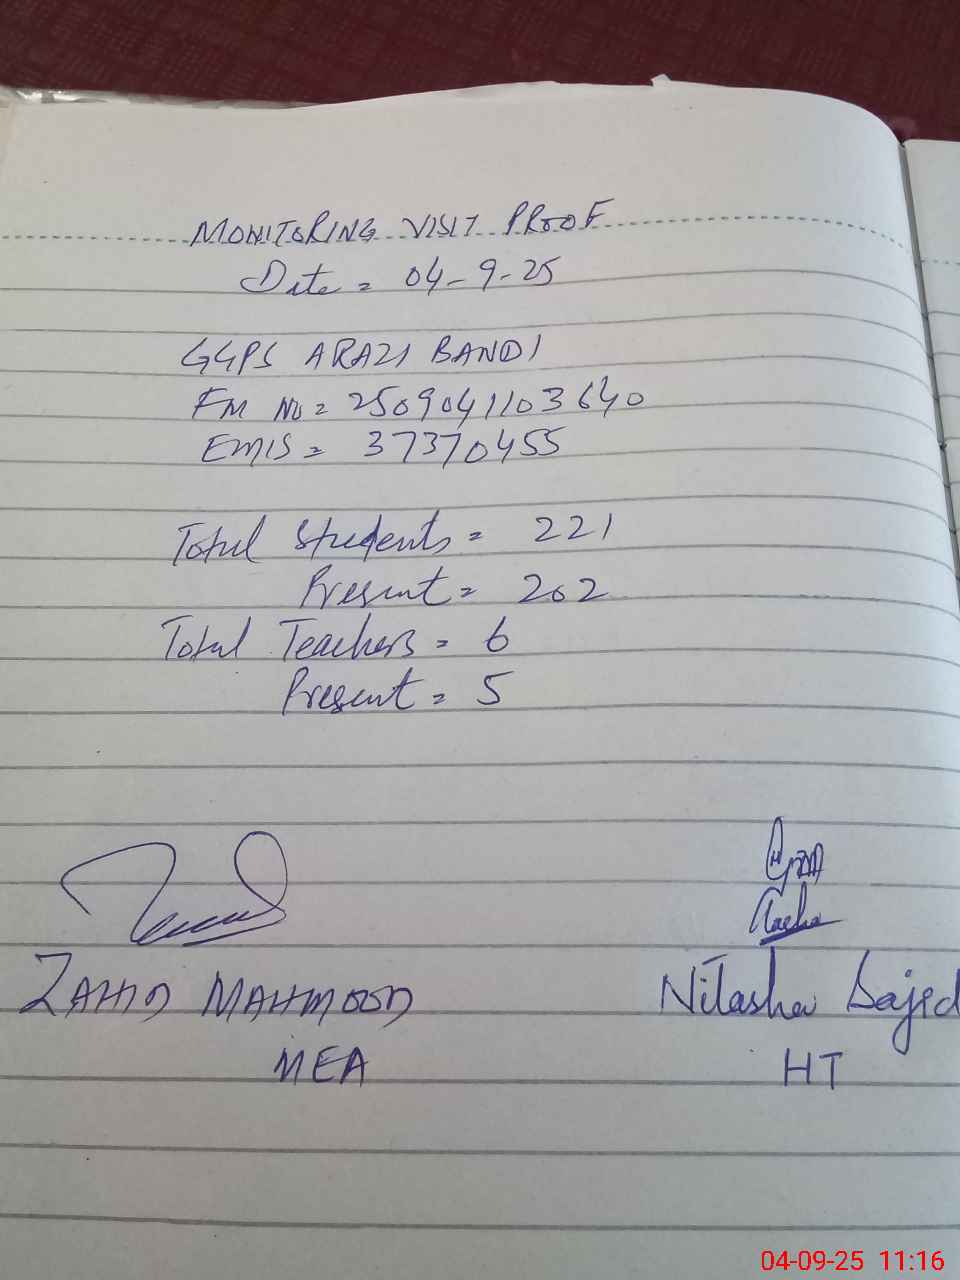 MONITORING VISIT PROOF
Date = 04-9-25
GGPS ARAZI BANDI
FM No = 2509041103640
EMIS = 37370455
Total Students = 221
Present = 202
Total Teachers = 6
Present = 5
ZAHID MAHMOOD
MEA
Nitasha Sajid
HT
04-09-25 11:16